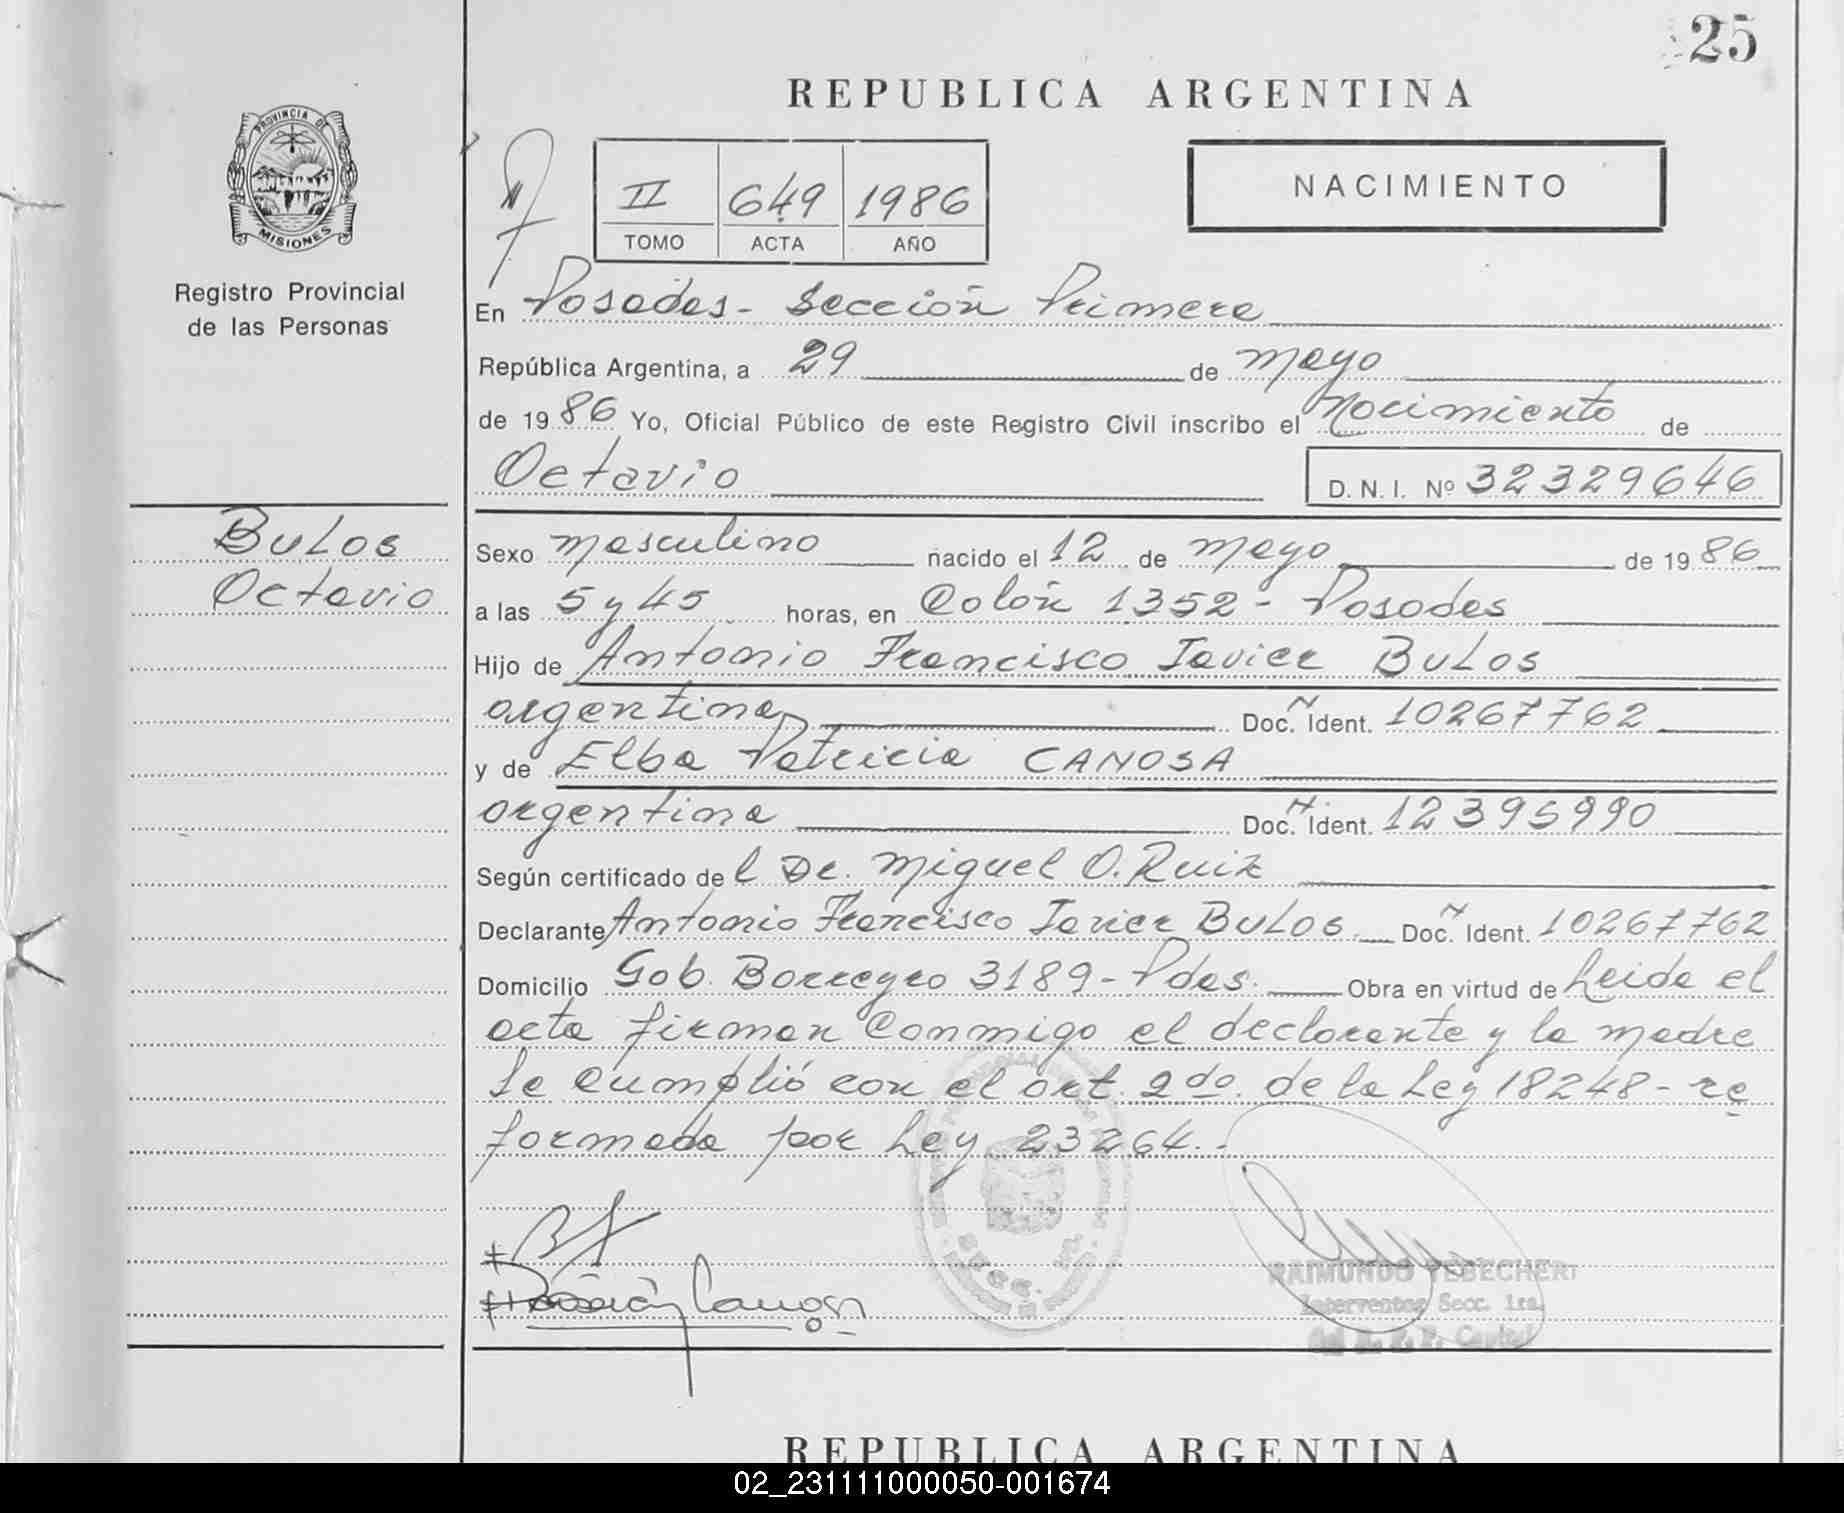 25
REPUBLICA ARGENTINA
PROVINCIA DE
MISIONES
Registro Provincial
de las Personas
II 649 1986
TOMO ACTA AÑO
NACIMIENTO
En Posadas - Sección Primera
República Argentina, a 29 de mayo
de 1986 Yo, Oficial Público de este Registro Civil inscribo el Nacimiento de
Octavio
D. N. I. Nº 32329646
BULOS
Octavio
Sexo masculino nacido el 12 de mayo de 1986
a las 5 y 45 horas, en Colón 1352 - Posadas
Hijo de Antonio Francisco Javier BULOS
argentina Doc. N Ident. 10267762
y de Elba Patricia CANOSA
argentina Doc. N Ident. 12395990
Según certificado del Dr. Miguel O. Ruiz
Declarante Antonio Francisco Javier BULOS. Doc. N Ident. 10267762
Domicilio Gob. Borreyro 3189 - Pdas. Obra en virtud de Leida el
acta firman conmigo el declarante y la madre
Se cumplió con el art. 2do. de la Ley 18248 - re
formada por Ley 23264.-
RAIMUNDO YEBECHERI
Interventor Secc. 1ra.
Canosa
REPUBLICA ARGENTINA
02_231111000050-001674